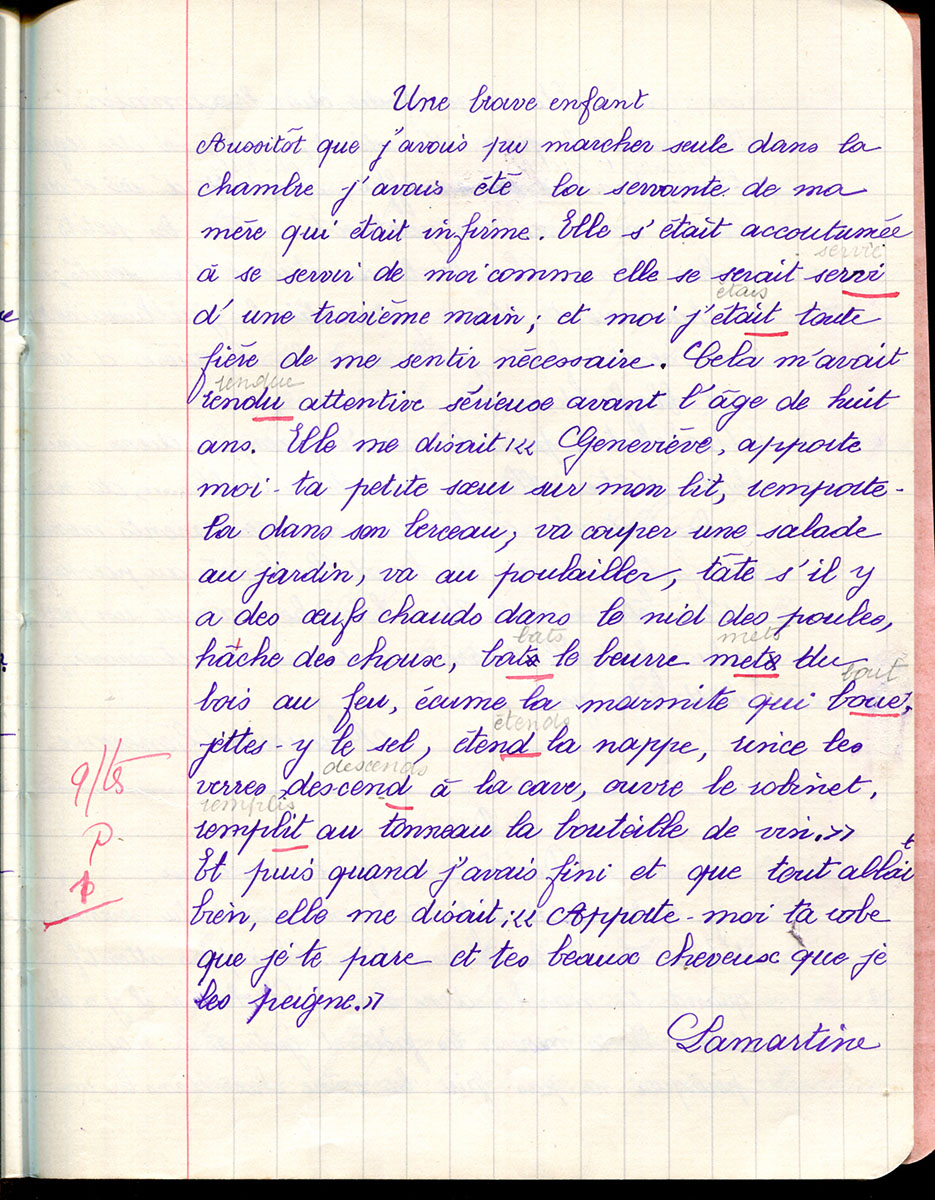 Une brave enfant
Aussitôt que j'avais pu marcher seule dans la
chambre j'avais été la servante de ma
mère qui était infirme. Elle s'était accoutumée
servie
à se servir de moi comme elle se serait servi
étais
d'une troisième main ; et moi j'était toute
fière de me sentir nécessaire. Cela m'avait
rendue
rendu attentive sérieuse avant l'âge de huit
ans. Elle me disait : « Geneviève, apporte
moi - ta petite sœur sur mon lit, remporte-
la dans son berceau, va couper une salade
au jardin, va au poulailler, tâte s'il y
a des œufs chauds dans le nid des poules,
bats mets
hâche des choux, bats le beurre mets du
bout
bois au feu, écume la marmite qui boue,
étends
jettes-y le sel, étend la nappe, rince les
descends
verres, descend à la cave, ouvre le robinet,
remplis
remplit au tonneau la bouteille de vin. »
Et puis quand j'avais fini et que tout allait
bien, elle me disait : « Apporte-moi ta robe
que je te pare et tes beaux cheveux que je
les peigne. »
Lamartine